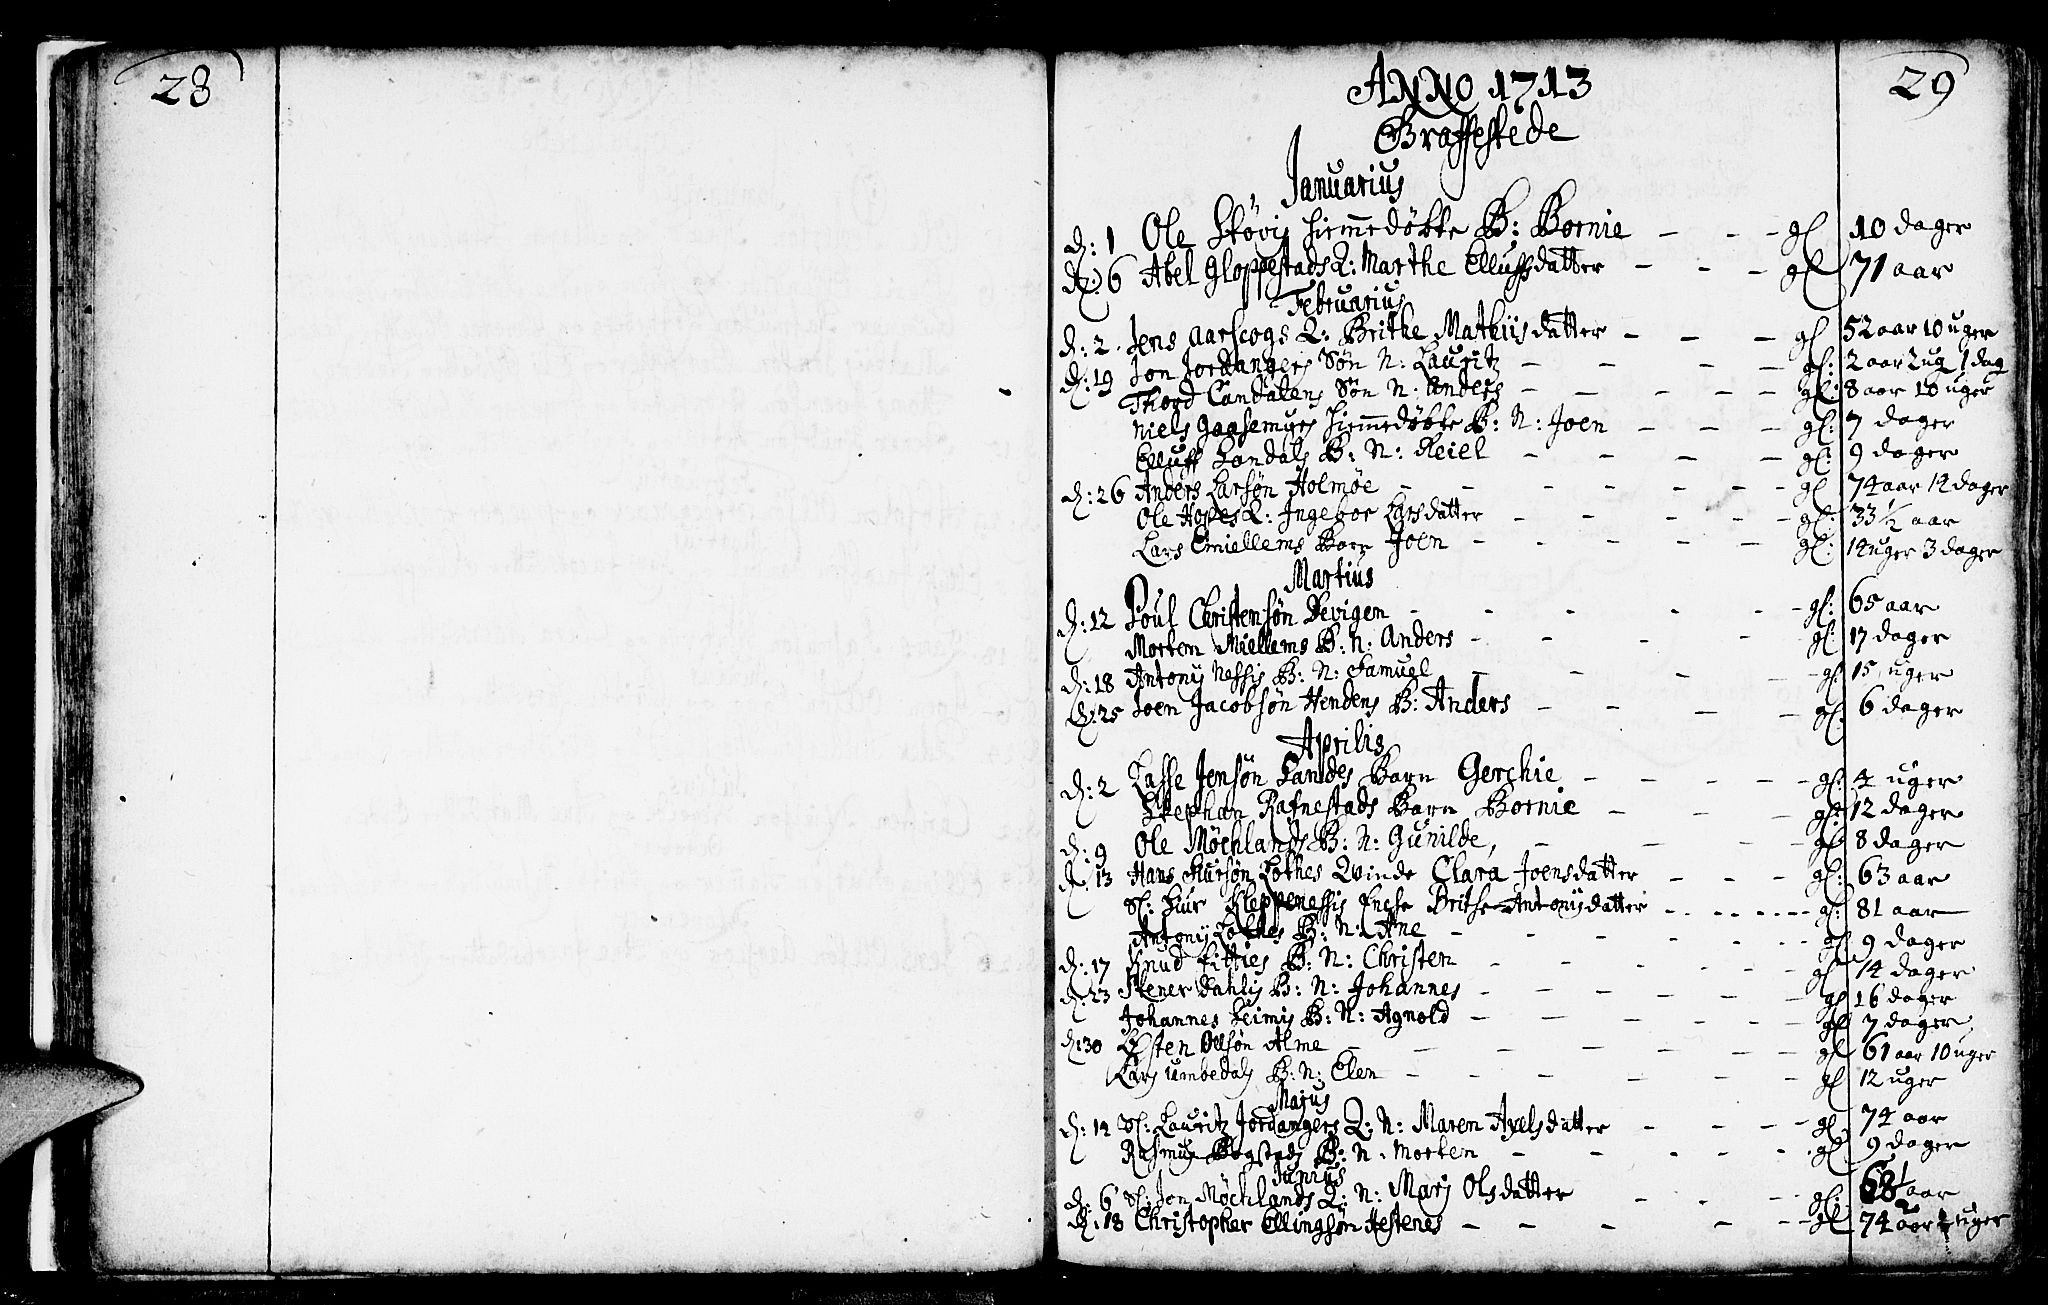 28
29
ANNO 1713
Graffestede
Januarius
d: 1 Ole Støvis hiemmedøbte B: Bornie - - - gl 10 dager
d: 6 Abel Gloppestads Q: Marthe Elluffsdatter - - - gl 71 aar
Februarius
d: 2 Jens Aarscogs Q: Brithe Mathiisdatter - - - gl 52 aar 10 uger
d: 19 Jon Jordangers Søn N: Lauritz - - - gl: 2 aar 2 ug 1 dag
Thord Sandalens Søn N: Anders - - - gl: 8 aar 10 uger
Niels Gaasemyrs hiemmedøbte B: N: Joen - - - gl: 7 dager
Elluff Sandals B: N: Reiel - - - gl: 9 dager
d: 26 Anders Larsøn Holmøe - - - gl 74 aar 14 dager
Ole Hopes Q: Ingebor Larsdatter - - - gl: 33 1/2 aar
Lars Emiellems Barn Joen - - - gl: 14 uger 3 dager
Martius
d: 12 Poul Christensøn Devigen - - - gl: 65 aar
Morten Miellems B: N: Anders - - - gl: 17 dager
d: 18 Antonij Nessis B: N: Samuel - - - gl: 15 uger
d: 25 Joen Jacobsøn Hendens B: Anders - - - gl: 6 dager
Aprilis
d: 2 Lasse Jensøn Sandes Barn Gerchie - - - gl: 4 uger
Stephan Rafnestads Barn Bornie - - - gl: 12 dager
d: 9 Ole Møchlands B: N: Gunilde, - - - gl 8 dager
d: 13 Hans Siursøn Lothes Qvinde Clara Joensdatter - - - gl: 63 aar
Sl: Siur Kleppenessis Enche Brithe Antonijsdatter - - - gl: 81 aar
Antonij Lothes B: N: Ane - - - gl 9 dager
d: 17 Knud Fitties B: N: Christen - - - gl 14 dager
d: 23 Stener Dahlis B: N: Johannes - - - gl 16 dager
Johannes Leimis B: N: Agnold - - - gl 7 dager
d: 30 Østen Olsøn Alme - - - gl 61 aar 10 uger
Lars Umbedals B: N: Elen - - - gl 12 uger
Majus
d: 14 Sl: Lauritz Jordangers Q: N: Maren Axelsdatter - - - gl 74 aar
Rasmus Bogstads B: N. Morten - - - gl 9 dager
Junius
d: 6 Sl: Jon Møchlands Q: N: Marj Olsdatter - - - gl: 68 1/2 aar
d: 18 Christopher Ellingsøn Hestenes - - - gl 74 aar uger